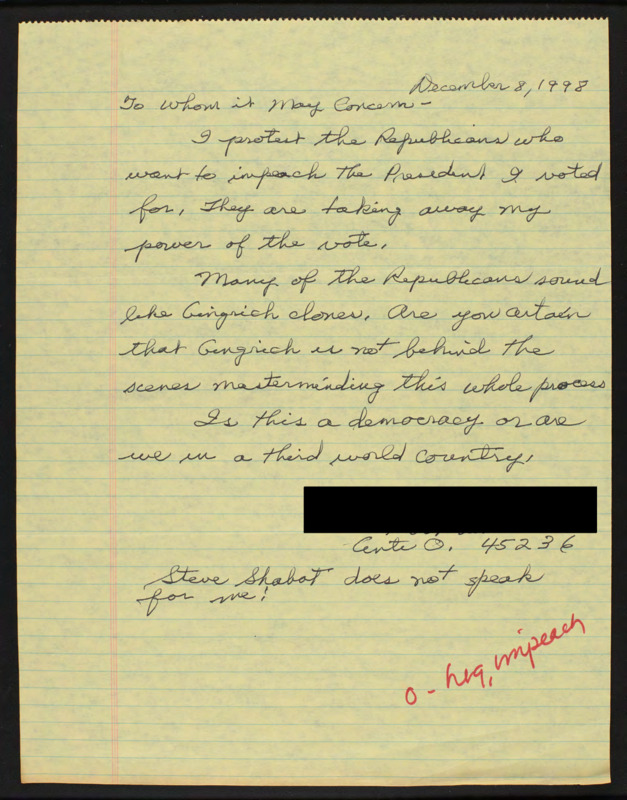 December 8, 1998
To Whom it May Concern -
I protest the Republicans who
want to impeach the President I voted
for. They are taking away my
power of the vote.
Many of the Republicans sound
like Gingrich clones. Are you certain
that Gingrich is not behind the
scenes masterminding this whole process
Is this a democracy or are
we in a third world country.
O. 45236
Steve Shabot does not speak
for me!
o - hrg, impeach